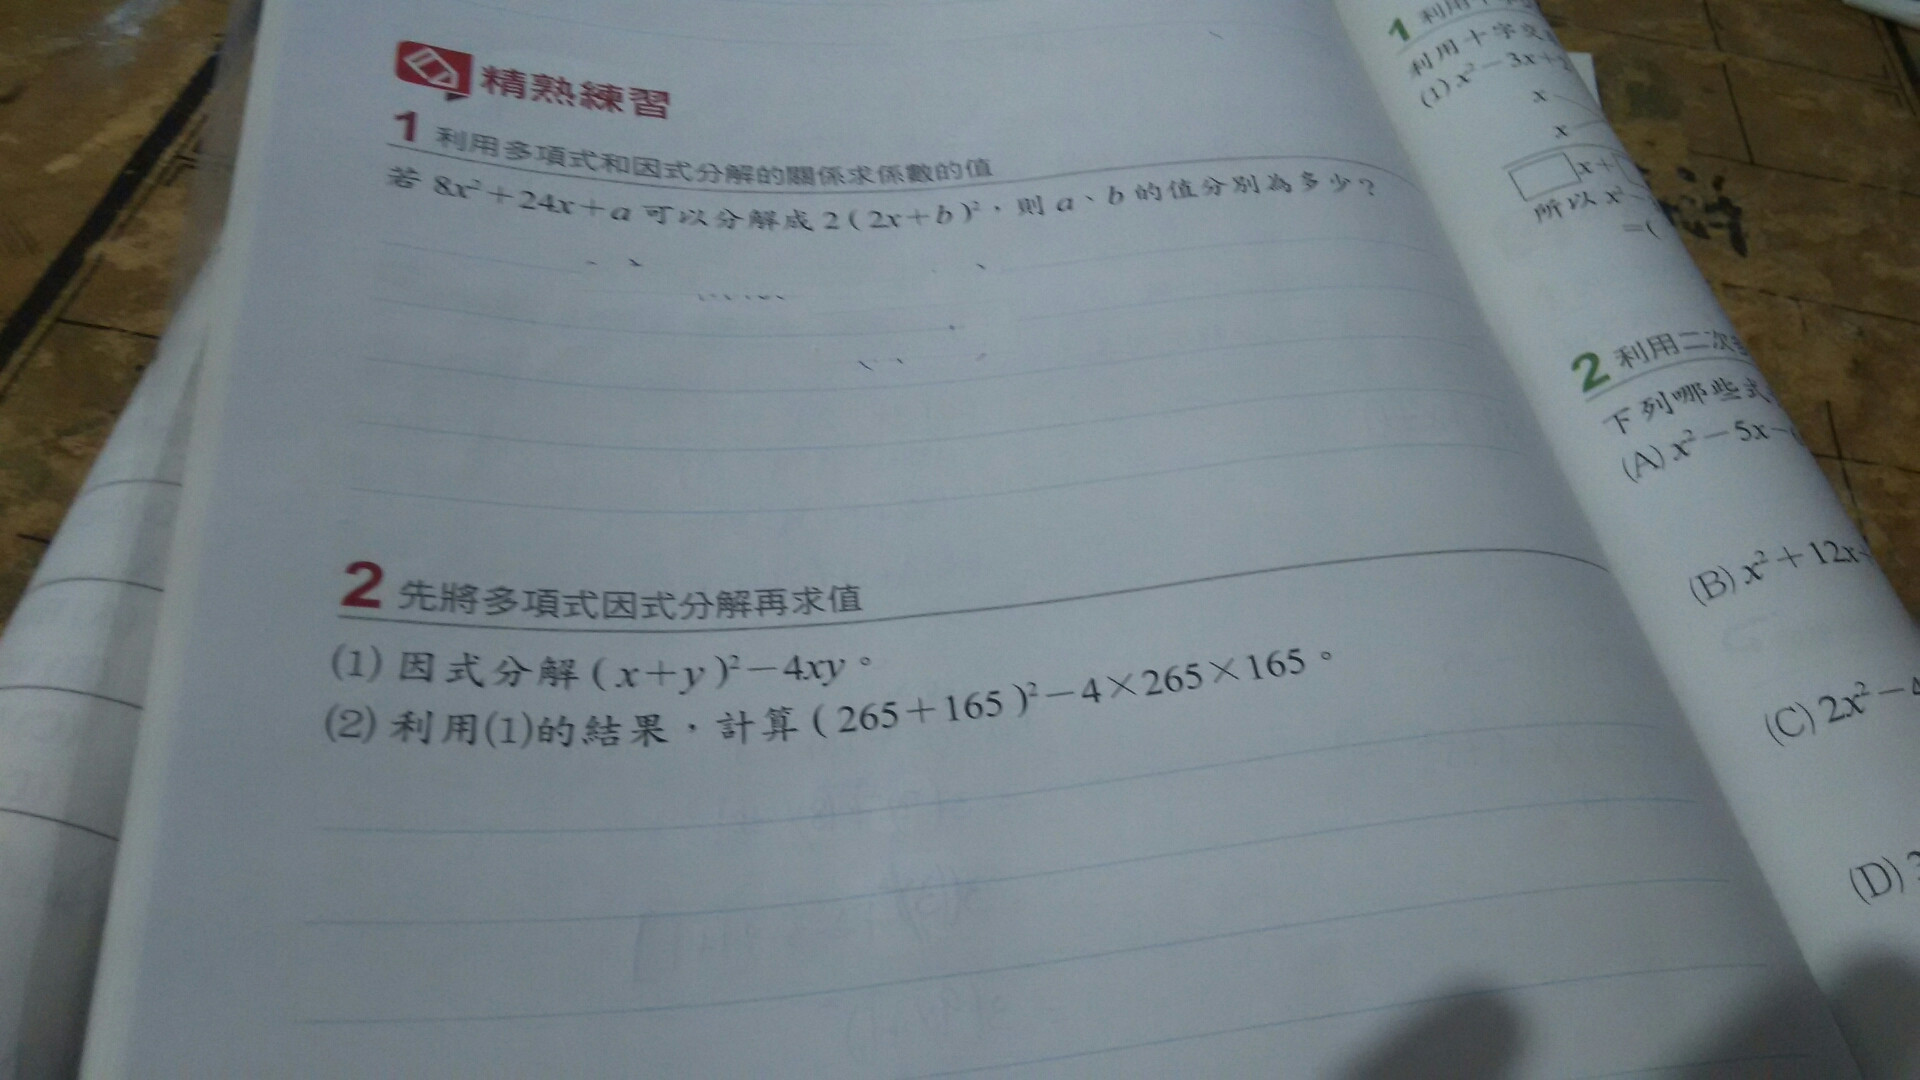 精熟練習
1 利用多項式和因式分解的關係求係數的值
若 8x²+24x+a 可以分解成 2(2x+b)²,則 a、b 的值分別為多少?
2 先將多項式因式分解再求值
(1) 因式分解(x+y)²-4xy。
(2) 利用(1)的結果,計算(265+165)²-4×265×165。
1
利用十字交
(1) x²-3x+2
x
x
x+
所以 x²
=(
2 利用二次
下列哪些式
(A) x²-5x-
(B) x²+12x
(C) 2x²-4
(D)